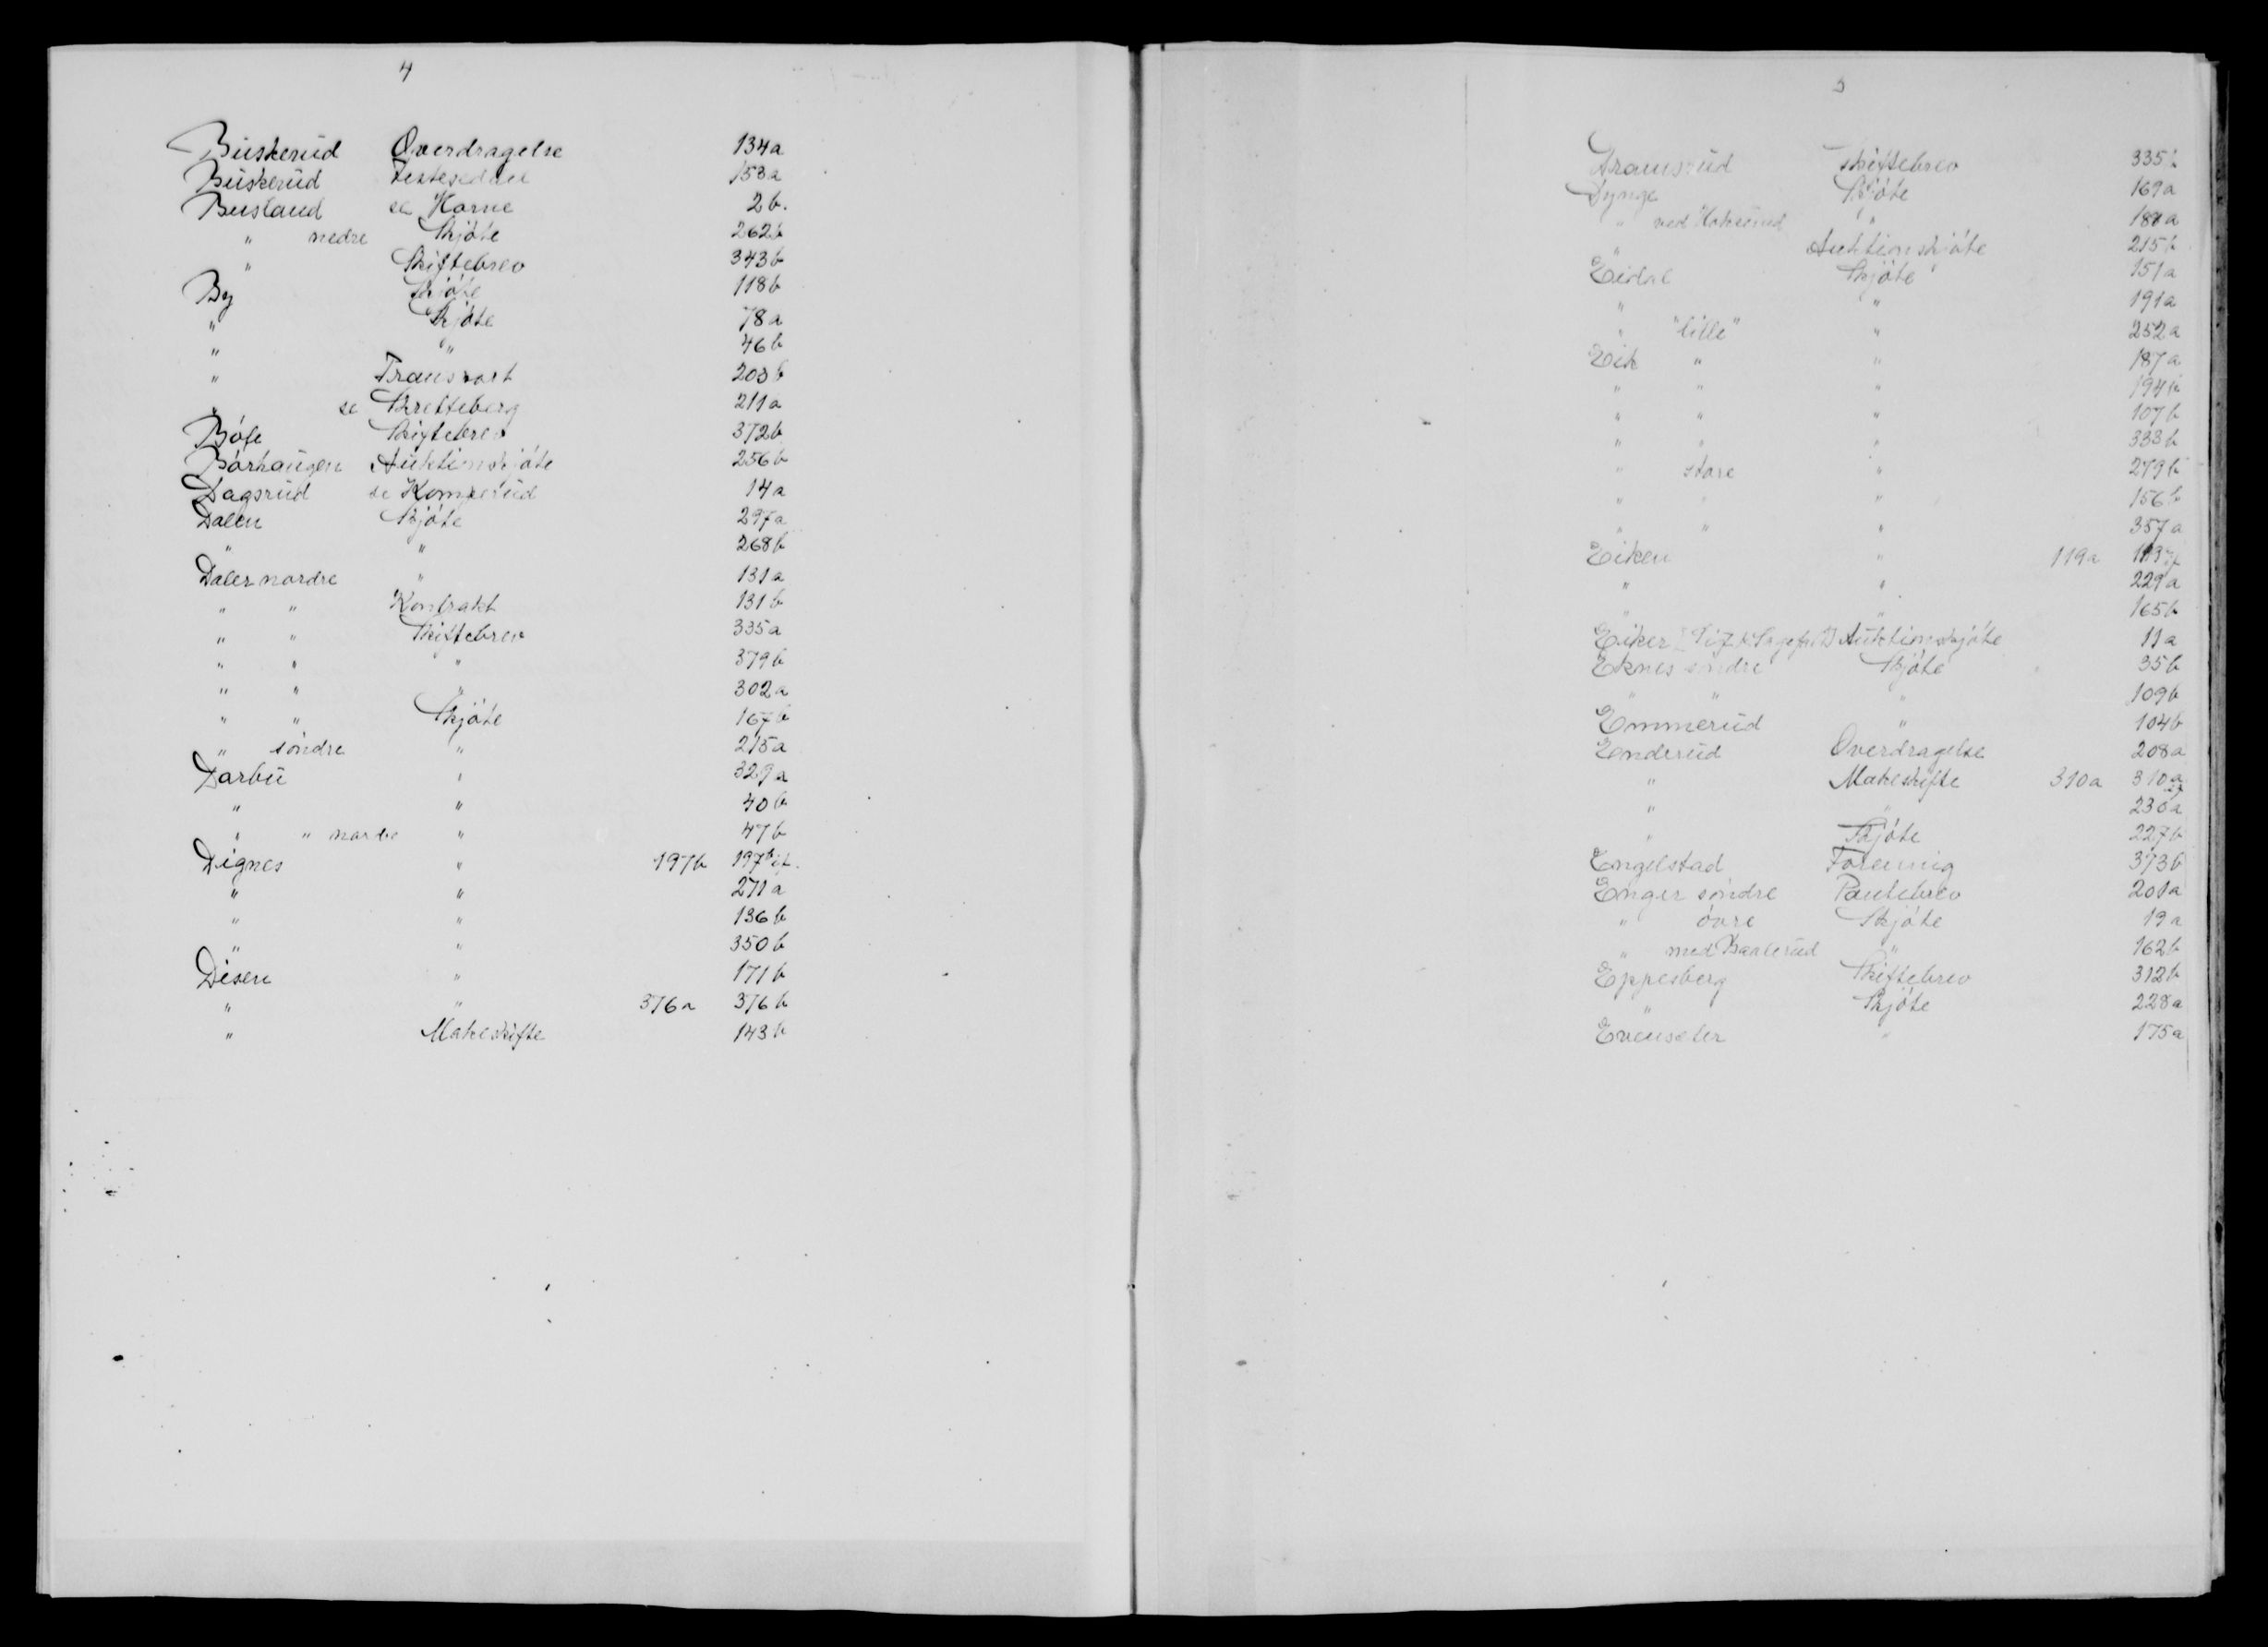 4
Buskerud Overdragelse 134a
Buskerud Festeseddel 153a
Busland se Horne 2b.
" nedre Skjöte 262b
" Skiftebrev 343b
By Skjöte 118b
" Skjöte 78a
" " 46b
" Transport 203b
" se Skretteberg 211a
Böle Skiftebrev 372b
Börhaugen Auktionskjöte 256b
Dagsrud se Komperud 14a
Dalen Skjöte 297a
" " 268b
Daler nordre " 131a
" " Kontrakt 131b
" " Skiftebrev 335a
" " " 379b
" " " 302a
" " Skjöte 167b
" söndre " 215a
Darbu " 329a
" " 40b
" " nordre " 47b
Dignes " 197b 197b
" " 271a
" " 136b
" " 350b
Disen " 171b
" " 376a 376b
" Makeskifte 143b
Skiftebrev 335b
Dynge Skjöte 169a
" ved Hoksund " 188a
" Auktionskjöte 215b
Eidal Skjöte 151a
" " 191a
" "lille" " 252a
Eik " " 187a
" " " 194b
" " " 107b
" " " 333b
" store " 279b
" " " 156b
" " " 357a
Eiken " 119a
" " 229a
" " 165b
Eiker Auktionskjöte 11a
Eknes söndre Skjöte 35b
" " " 109b
Emmerud " 104b
Enderud Overdragelse 208a
" Makeskifte 310a 310a
" " 236a
" Skjöte 227b
Engelstad Forening 373b
Enger söndre Pantebrev 201a
" övre Skjöte 19a
" med Baalerud " 162b
Eppesberg Skiftebrev 312b
" Skjöte 228a
Evenseter " 175a